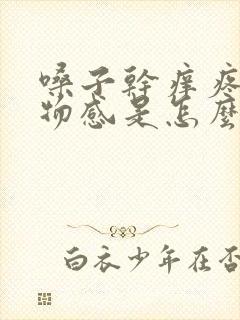 嗓子幹癢疼
物感是怎麼
白衣少年在否